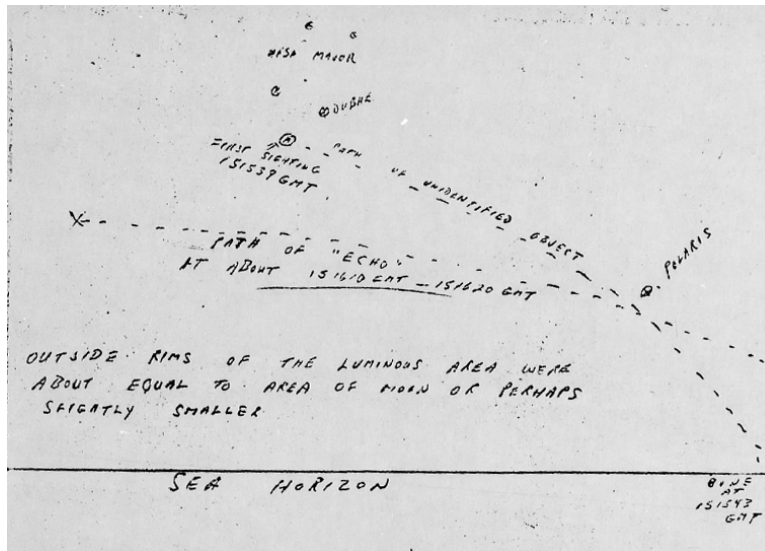 URSA MAJOR
DUBHE
FIRST SIGHTING
151539 GMT
PATH OF UNIDENTIFIED OBJECT
X
PATH OF "ECHO"
AT ABOUT 151610 GMT - 151620 GMT
POLARIS
OUTSIDE RIMS OF THE LUMINOUS AREA WERE
ABOUT EQUAL TO AREA OF MOON OR PERHAPS
SLIGHTLY SMALLER
SEA HORIZON
AT
151543
GMT